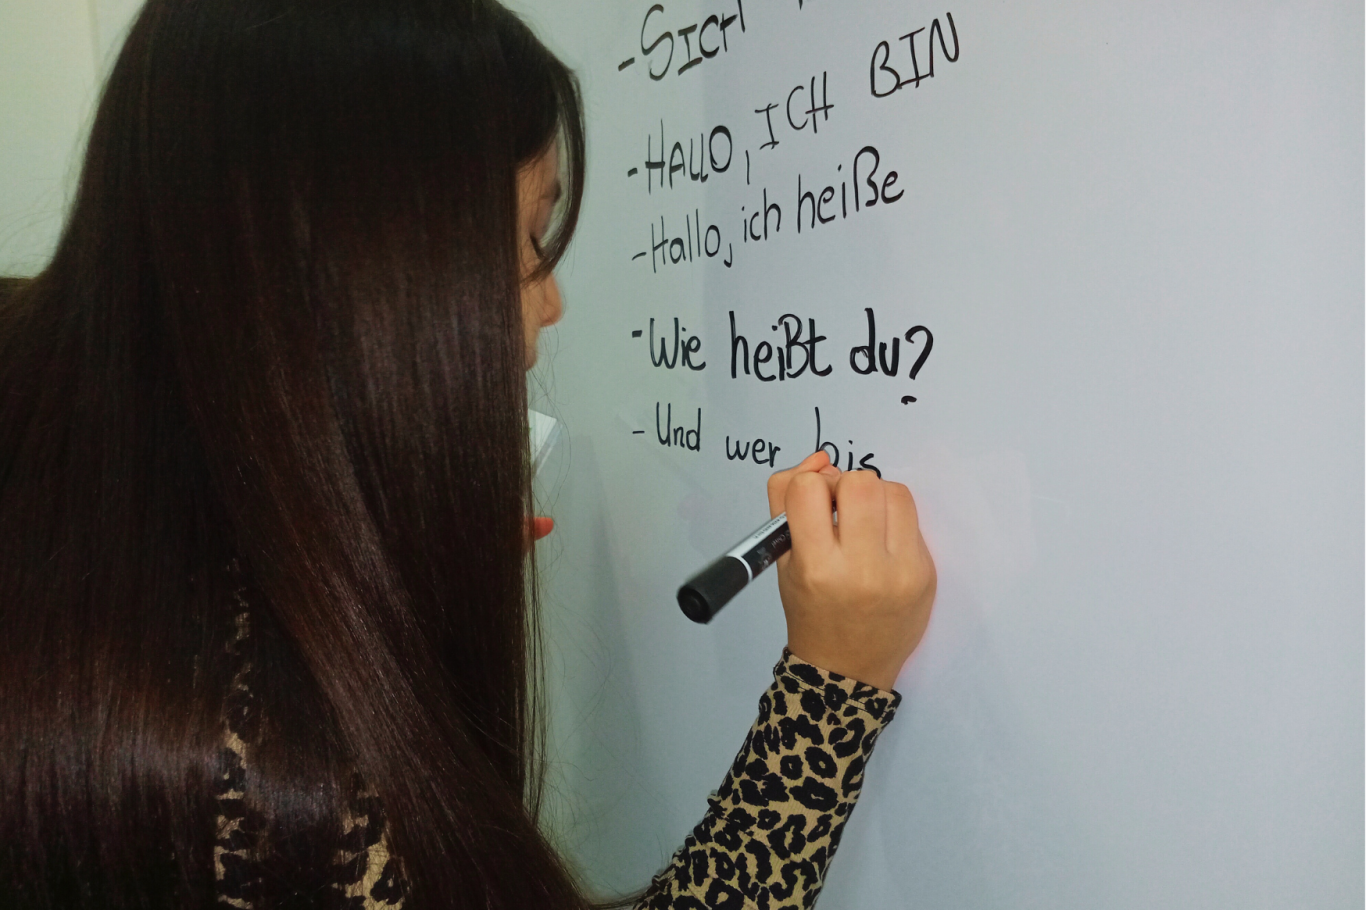 - SICH
- HALLO, ICH BIN
- Hallo, ich heiße
- Wie heißt du?
- Und wer bis